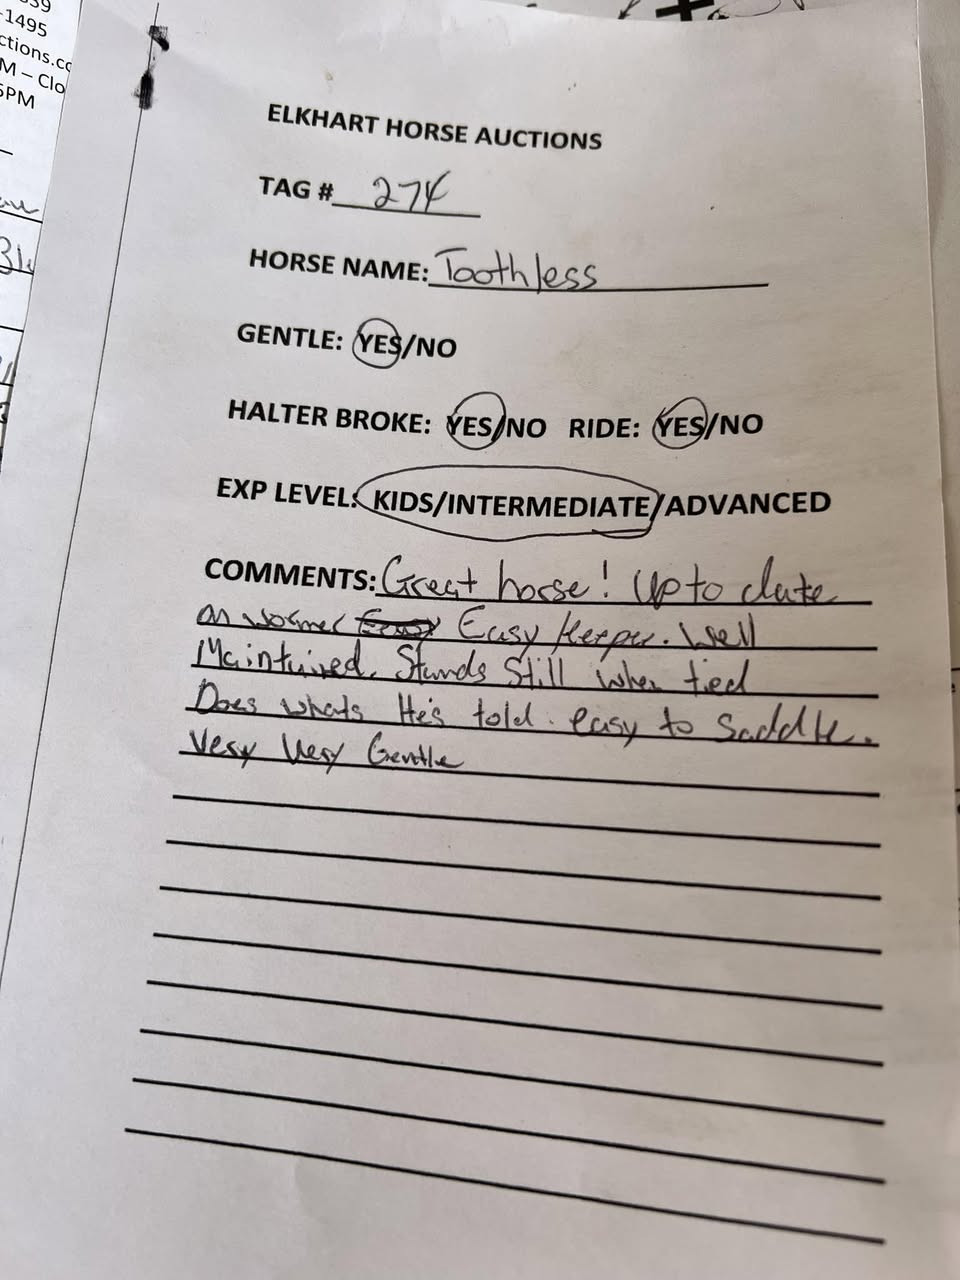 39
-1495
ctions.co
M – Clo
5PM
ELKHART HORSE AUCTIONS
TAG # 274
HORSE NAME: Toothless
GENTLE: YES/NO
HALTER BROKE: YES/NO RIDE: YES/NO
EXP LEVEL: KIDS/INTERMEDIATE/ADVANCED
COMMENTS: Great horse! Up to date
on wormer Easy Keeper. Well
Maintained. Stands Still when tied
Does whats He's told. easy to saddle.
Very Very Gentle